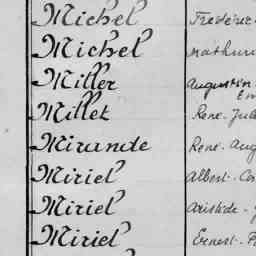 Michel Frédéric
Michel Mathuri
Miller Augustin
Em
Millet René-Jule
Mirande René-Aug
Miriel Albert-Co
Miriel Aristide-J
Miriel Ernest-F